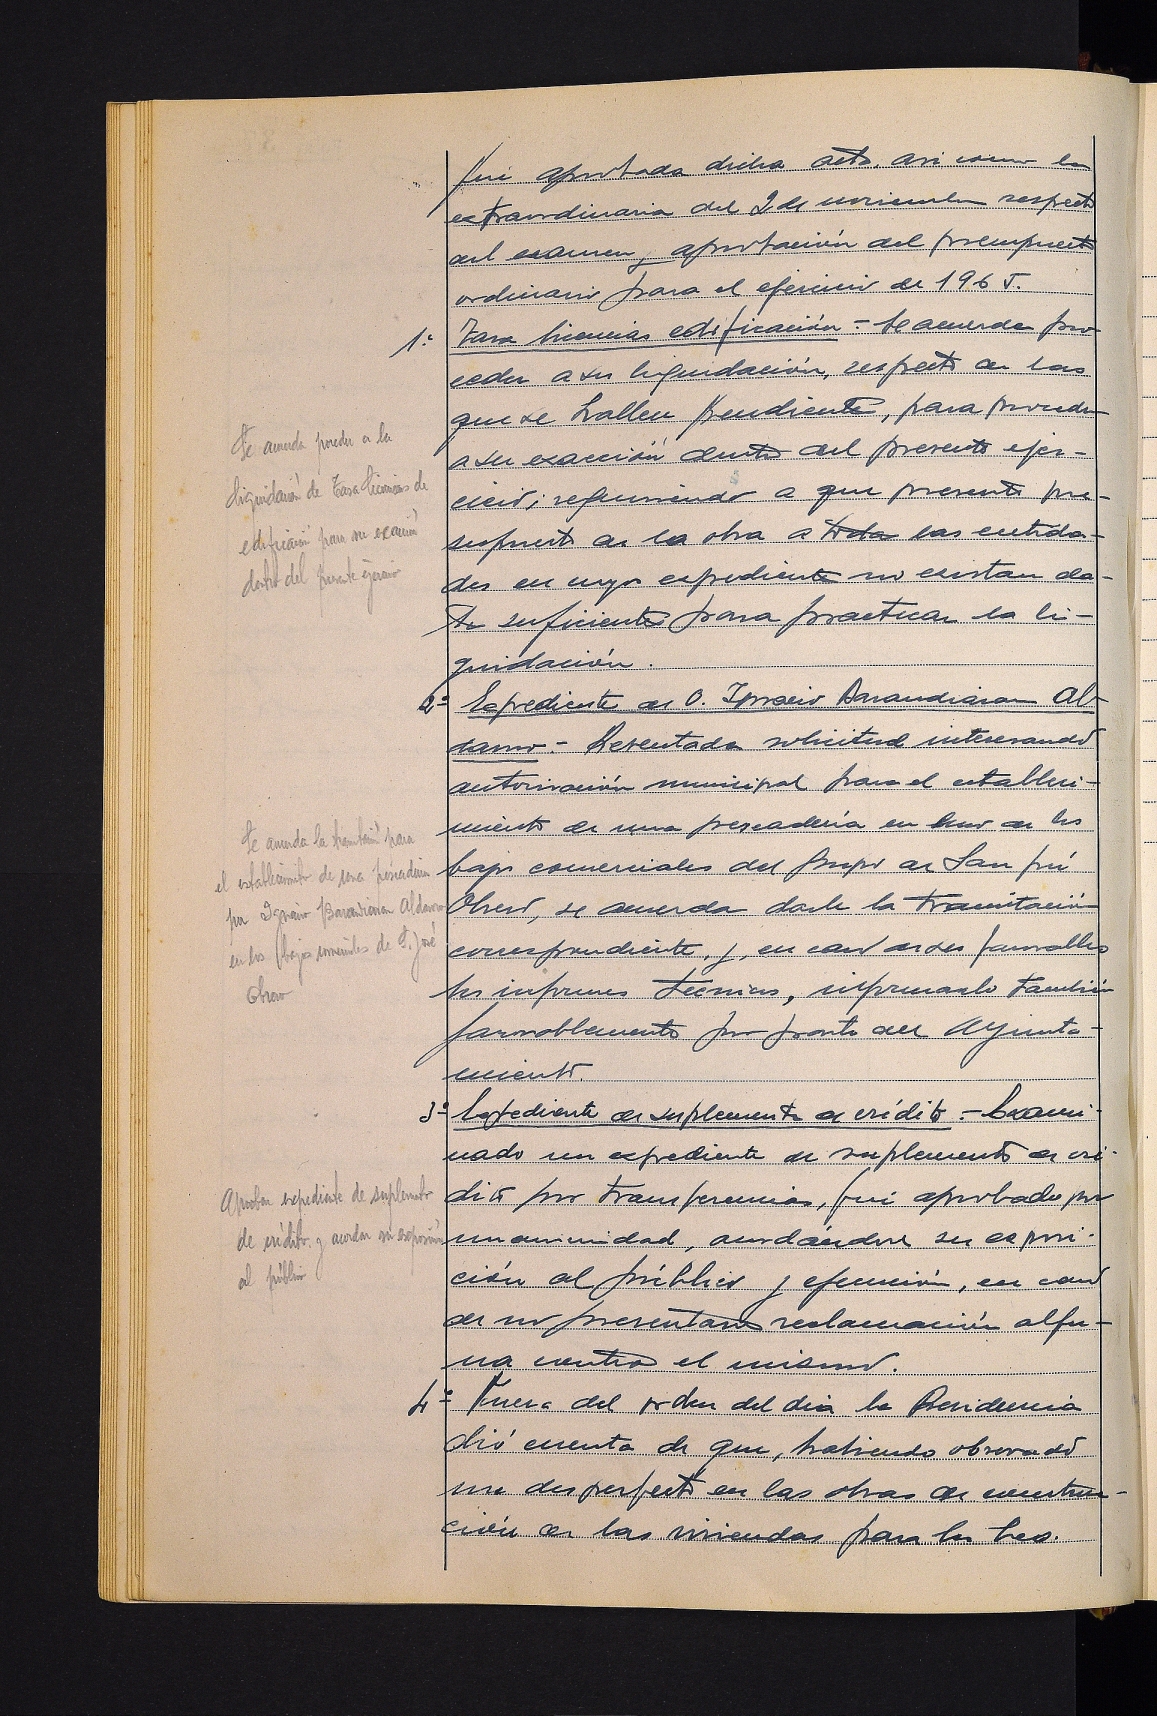 fué aprobada dicha acta, asi como la
extraordinaria del 2 de noviembre respecto
del examen y aprobación del presupuesto
ordinario para el ejercicio de 1965.
1º Tasa licencias edificación = Se acuerda pro-
ceder a su liquidación, respecto de las
que se hallen pendientes, para proceder
a su exacción dentro del presente ejer-
cicio; requiriendo a que presente pre-
supuesto de la obra a todas las entida-
des en cuyo expediente no existan da-
tos suficientes para practicar la li-
quidación.
Se acuerda proceder a la
liquidación de Tasa licencias de
edificación para su exacción
dentro del presente ejercicio
2º Expediente de D. Ignacio Barandiaran Al-
damo = Presentada solicitud interesando
autorización municipal para el estableci-
miento de una pescadería en uno de los
bajos comerciales del Grupo de San José
Obrero, se acuerda darle la tramitación
correspondiente, y, en caso de ser favorables
los informes técnicos, informarlo también
favorablemente por parte del Ayunta-
miento.
Se acuerda la tramitación para
el establecimiento de una pescadería
por Ignacio Barandiaran Aldamo
en los bajos comerciales de S. José
Obrero
3º Expediente de suplemento de crédito = Exami-
nado un expediente de suplemento de cré-
dito por transferencias, fué aprobado por
unanimidad, acordándose su exposi-
ción al público y ejecución, en caso
de no presentarse reclamación algu-
na contra el mismo.
Aprobar expediente de suplemento
de crédito y acordar su exposición
al público
4º Fuera del orden del día la Presidencia
dió cuenta de que, habiendo observado
un desperfecto en las obras de construc-
ción de las viviendas para los Mae-